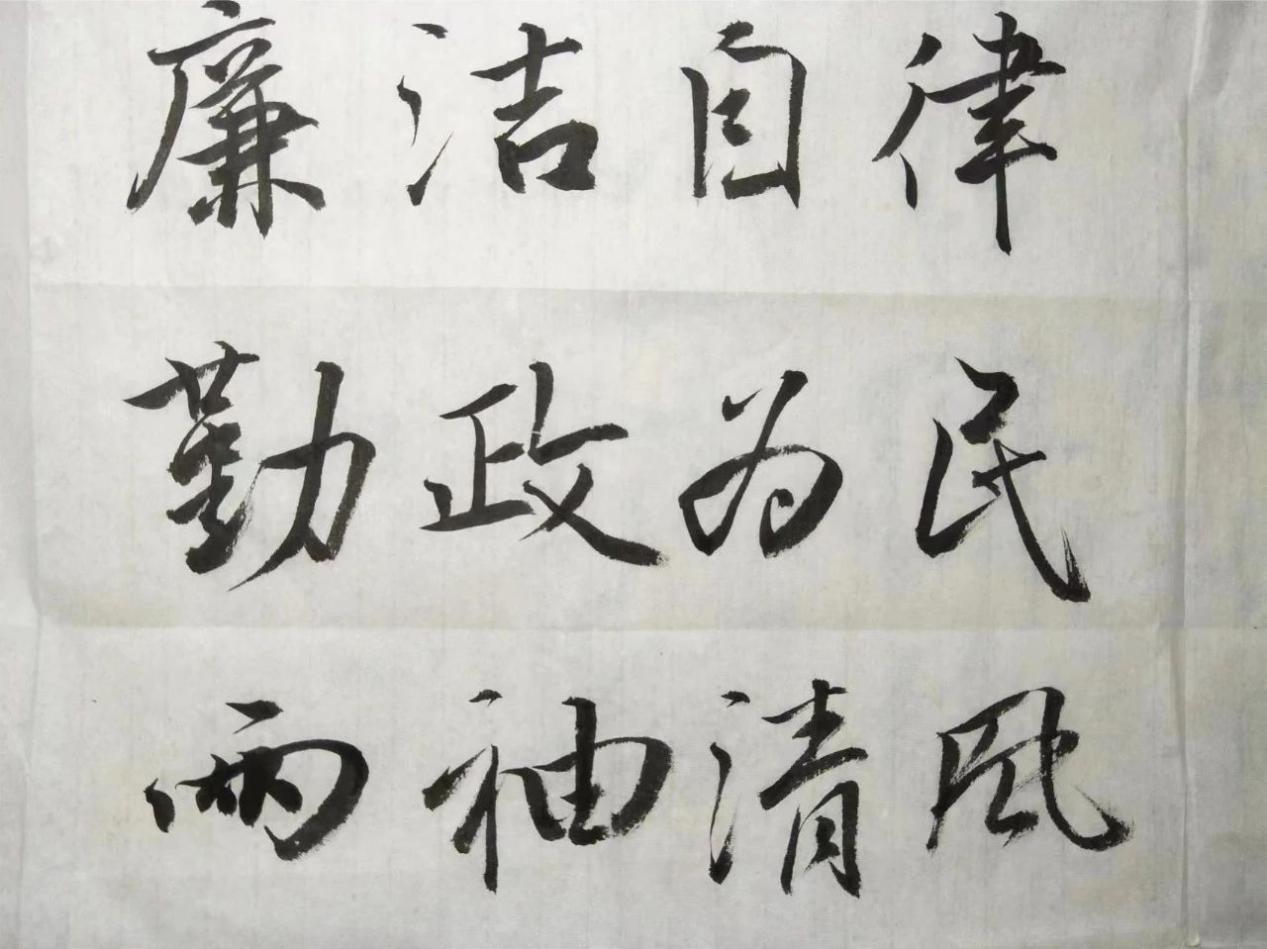 廉洁自律
勤政为民
两袖清风